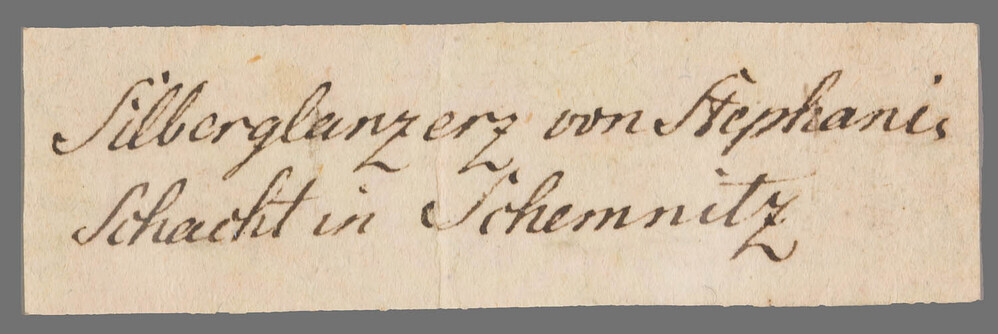 Silberglanzerz von Stephani,
Schacht in Schemnitz